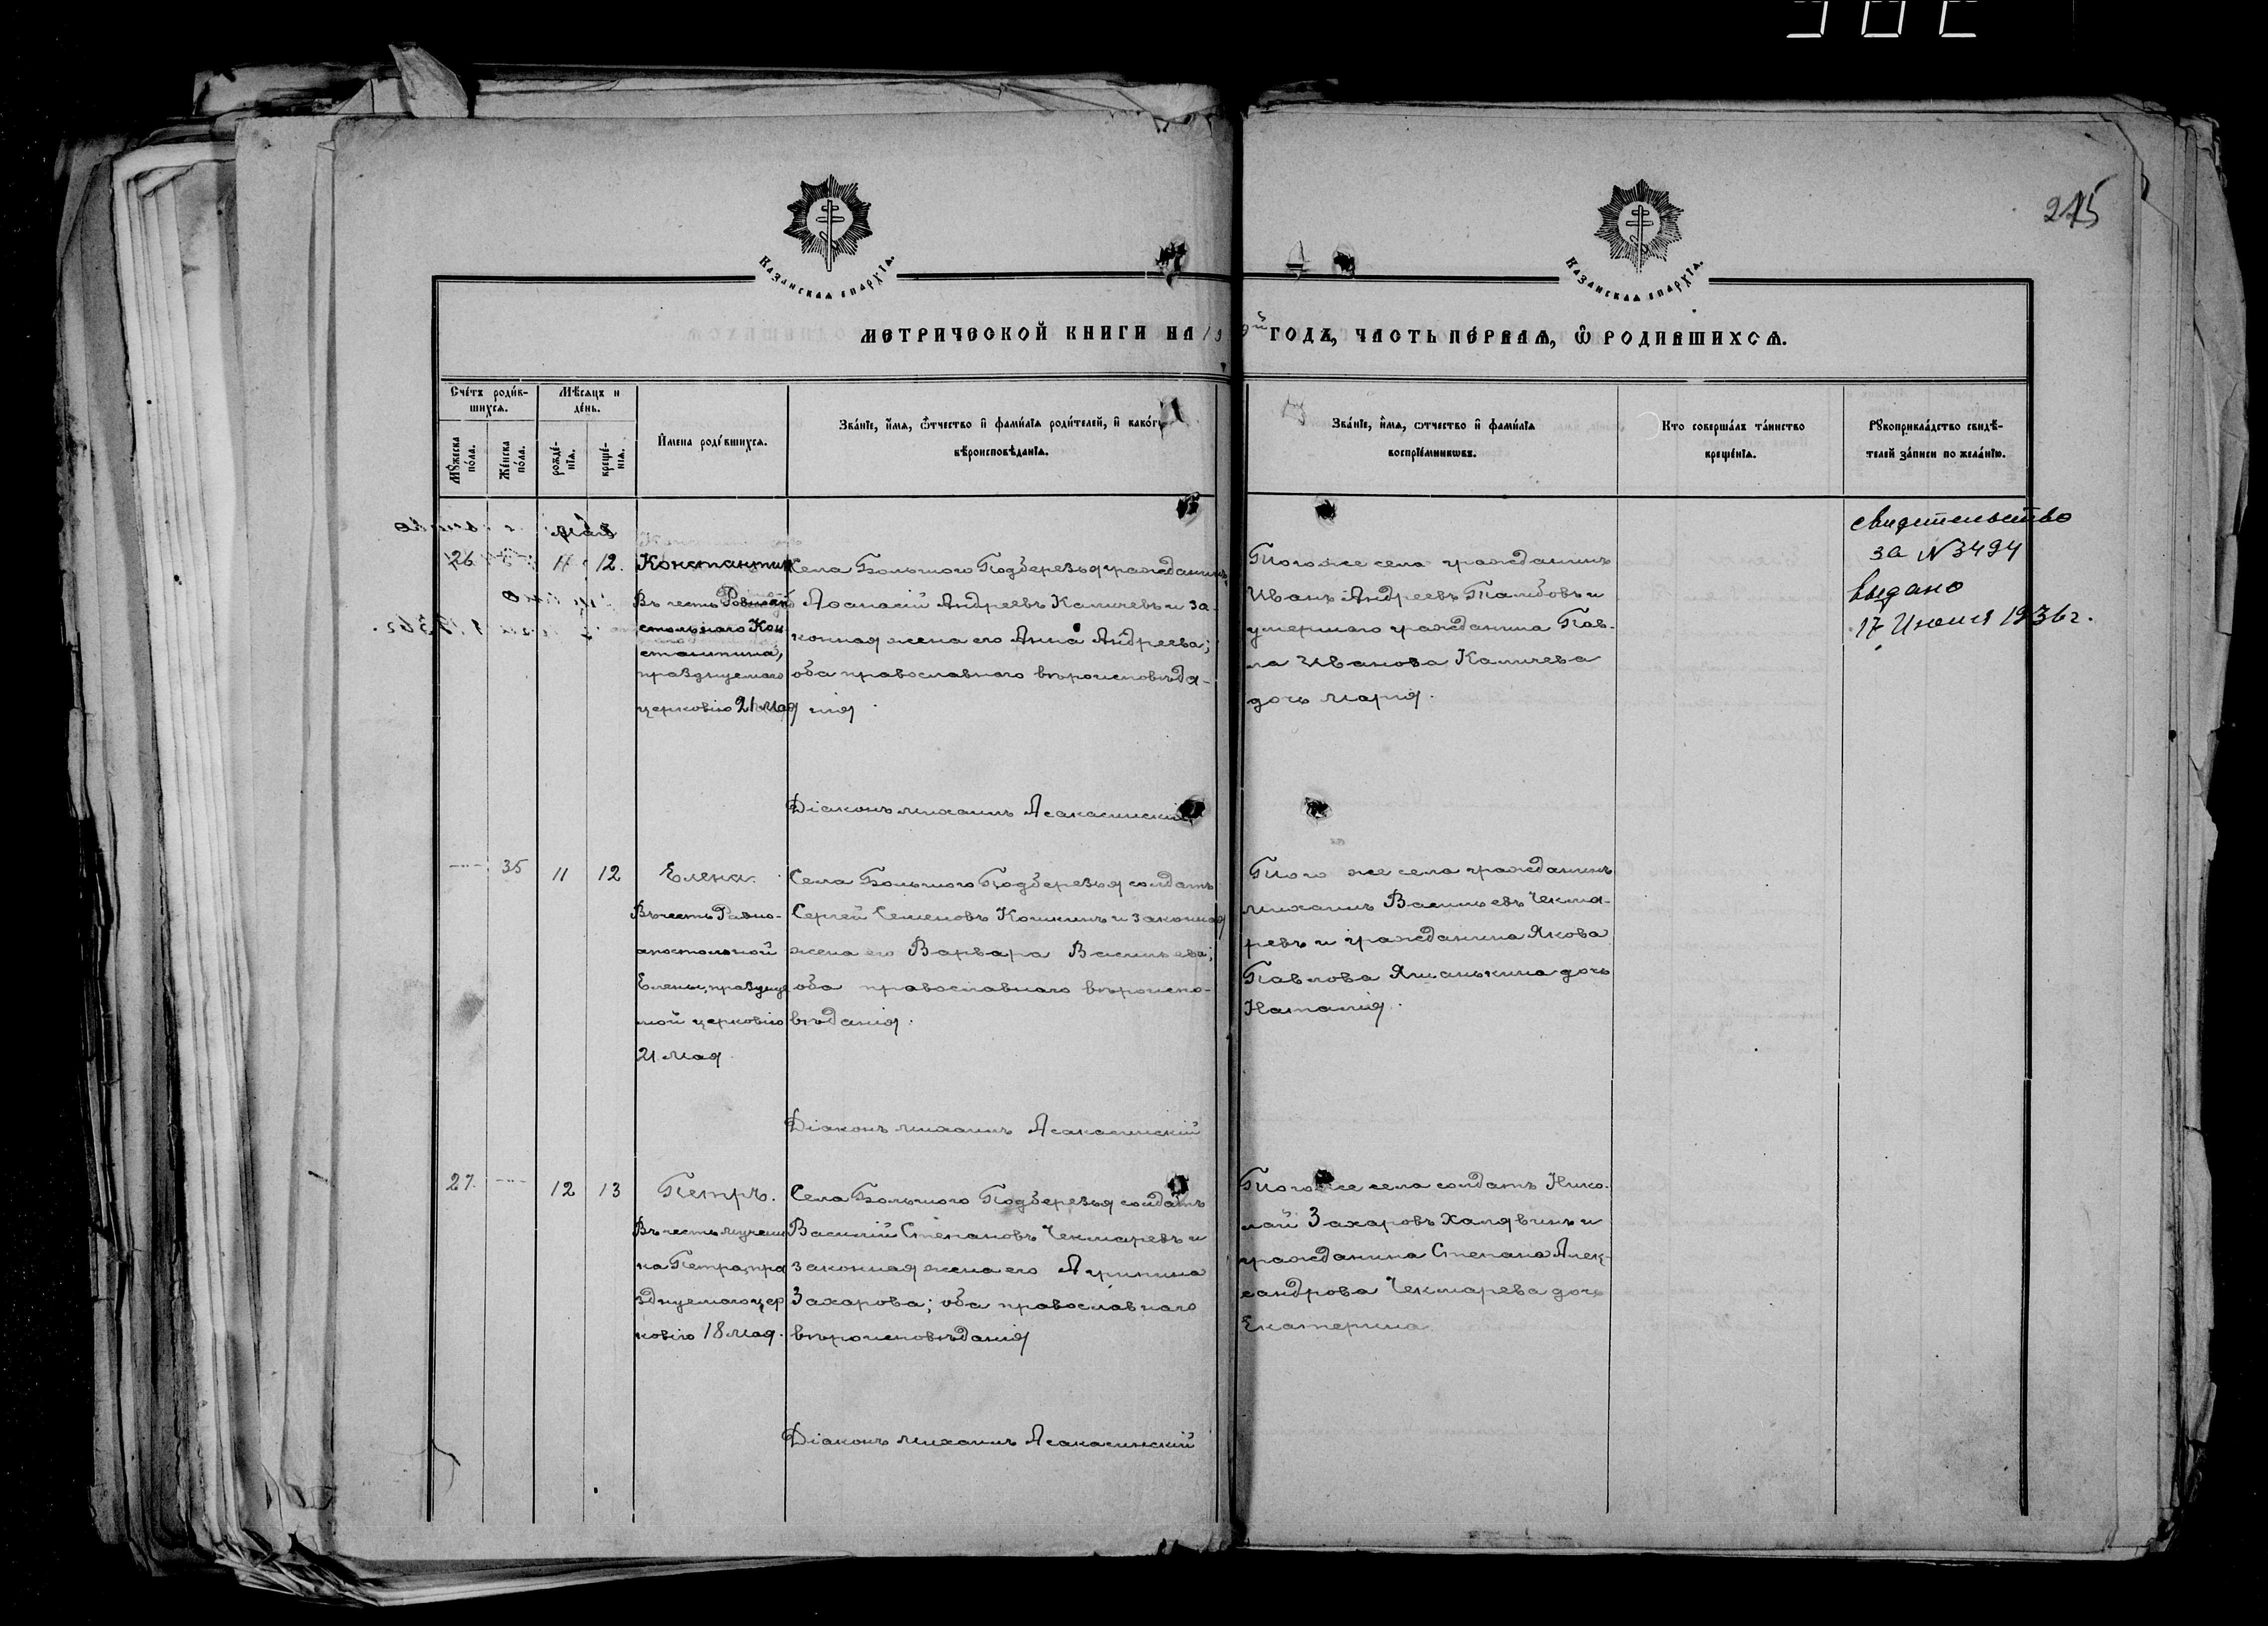 215
Казанская епархіа.
Казанская епархіа.
МЕТРИЧЕСКОЙ КНИГИ НА 19 9й ГОДЪ, ЧАСТЬ ПЕРВАЯ, Ѿ РОДИВШИХСЯ.
Сче́тъ роди́в-
шихся.
Мѣсяцъ и
де́нь.
Мꙋжеска
по́ла.
Же́нска
по́ла.
рожде́-
нїя.
креще́-
нїя.
И҆мена роди́вшихся.
Зва́нїе, и҆мя, ѻ҆тчество и҆ фами́лїя роди́телей, и҆ како́гѡ
вѣроисповѣ́данїя.
Зва́нїе, и҆мя, ѻ҆тчество и҆ фами́лїя
воспрїе́мникѡвъ.
Кто соверша́лъ та́инство
креще́нїя.
Рꙋкоприкла́дство свидѣ́-
телей за́писи по жела́нїю.
Май
26 11 12. Константинъ
Въ честь Равноап
стольнаго Кон
стантина,
празднуемаго
церковію 21 мая
Села Большого Подберезья гражданинъ
Аѳанасій Андреевъ Каличевъ и за-
конная жена его Анна Андреева;
оба православнаго вѣроисповѣда-
нія.
Діаконъ Михаилъ Асакасинскій
Того же села гражданинъ
Иванъ Андреевъ Талибовъ и
умершаго гражданина Пав-
ла Иванова Каличева
дочь Марія.
свидетельство
за N 3494
выдано
17 Июня 1936 г.
35 11 12 Елена.
Въ честь Равно-
апостольной
Елены, праздуе
мой церковію
21 мая.
Села Большого Подберезья солдатъ
Сергей Семеновъ Кошкинъ и законная
жена его Варвара Васильева;
оба православнаго вѣроиспо-
вѣданія.
Діаконъ Михаилъ Асакасинскій
Того же села гражданинъ
Михаилъ Васильевъ Чекма-
ревъ и гражданина Якова
Павлова дочь
Наталія.
27. 12 13 Петръ.
Въ честь мучени
ка Петра, пра
зднуемаго цер
ковію 18 мая.
Села Большого Подберезья солдатъ
Василій Степановъ Чекмаревъ и
законная жена его Агрипина
Захарова; оба православнаго
вѣроисповѣданія
Діаконъ Михаилъ Асакасинскій
Того же села солдатъ Нико-
лай Захаровъ Халявинъ и
гражданина Степана Алек-
сандрова Чекмарева дочь
Екатерина.